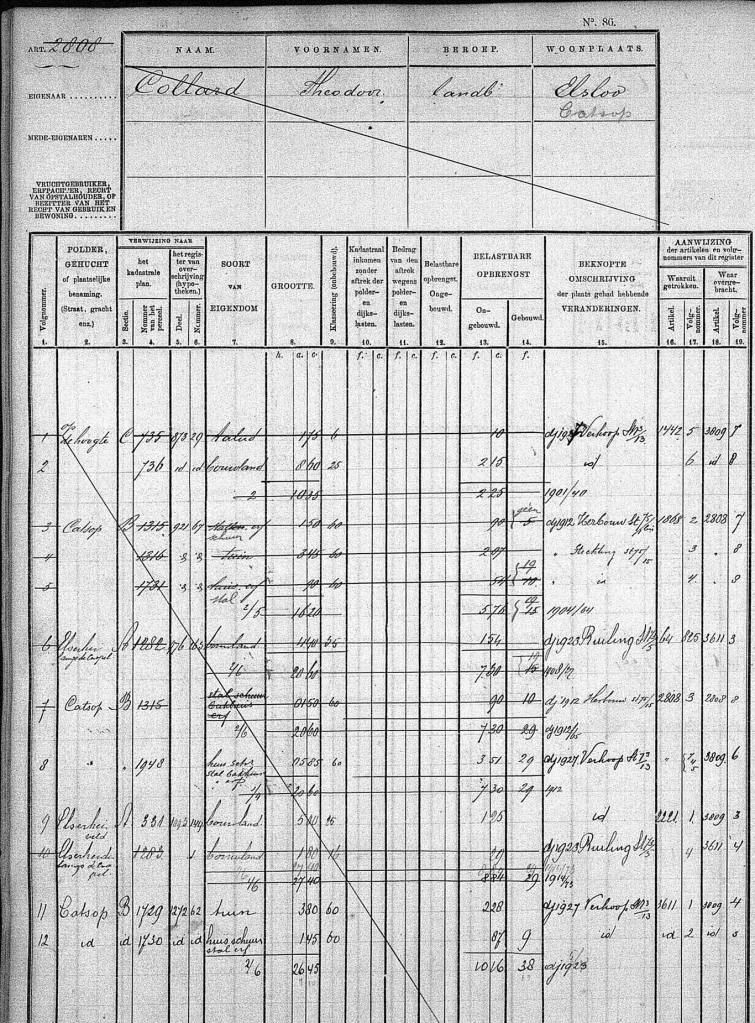 Nº. 86.
ART. 2808
NAAM. VOORNAMEN. BEROEP. WOONPLAATS.
EIGENAAR Collard Theodoor landb Elsloo
Catsop
MEDE-EIGENAREN
VRUCHTGEBRUIKER,
ERFPACHTER, RECHT
VAN OPSTALHOUDER, OF
BEZITTER VAN HET
RECHT VAN GEBRUIK EN
BEWONING.
Volgnommer. POLDER, GEHUCHT of plaatselijke benaming. (Straat, gracht enz.) VERWIJZING NAAR het kadastrale plan. Sectie. Nommer van het perceel. het register van overschrijving (hypotheken.) Deel. Nummer. SOORT VAN EIGENDOM GROOTTE. Klasseering (onbebouwd). Kadastraal inkomen zonder aftrek der polder- en dijkslasten. Bedrag van den aftrek wegens polder- en dijkslasten. Belastbare opbrengst. Ongebouwd. BELASTBARE OPBRENGST Ongebouwd. Gebouwd. BEKNOPTE OMSCHRIJVING der plaats gehad hebbende VERANDERINGEN. AANWIJZING der artikelen en volgnommers van dit register Waaruit getrokken. Artikel. Volgnommer. Waar overgebracht. Artikel. Volgnommer
1. 2. 3. 4. 5. 6. 7. 8. 9. 10. 11. 12. 13. 14. 15. 16. 17. 18. 19.
h. a. c. f. c. f. c. f. c. f. f.
1 de hoogte C 735 873 29 talud 175 6 10 dj1927 Verkoop 1442 5 3809 7
2 736 id id bouwland 860 25 215 id 6 id 8
2 1035 225 1901/40
3 Catsop B 1315 921 67 stal erf schuur 150 60 90 5 dj1912 Herbouw 1868 2 2808 7
4 1316 tuin 345 60 207 " Stichting 3 " 8
5 1731 huis erf stal 90 60 54 " id 4 " 8
2/5 1620 576 1904/
6 Elserhei A 1282 176 bouwland 440 35 154 dj1923 Ruiling 64 825 3611 3
2/6 2060 730
7 Catsop B 1315 stal schuur bakhuis erf 0150 60 90 10 dj1912 Herbouw 2808 3 2808 8
2/6 2060 730 29 dj1912/
8 " " 1948 huis schr stal bakhuis erf 0585 60 351 29 dj1927 Verkoop " 3809 6
2060 730 29 1912
9 Elserhei veld A 331 bouwland 500 25 125 id 2221 1 3809 3
10 Elserheid 1283 bouwland 180 dj1923 Ruiling 4 3611 4
1/6 2740 884 29 1914/
11 Catsop B 1729 1272 62 tuin 380 60 228 dj1927 Verkoop 3611 1 3809 4
12 id id 1730 id id huis schuur stal erf 145 60 87 9 id id 2 id 5
2/6 2645 1016 38 dj1923